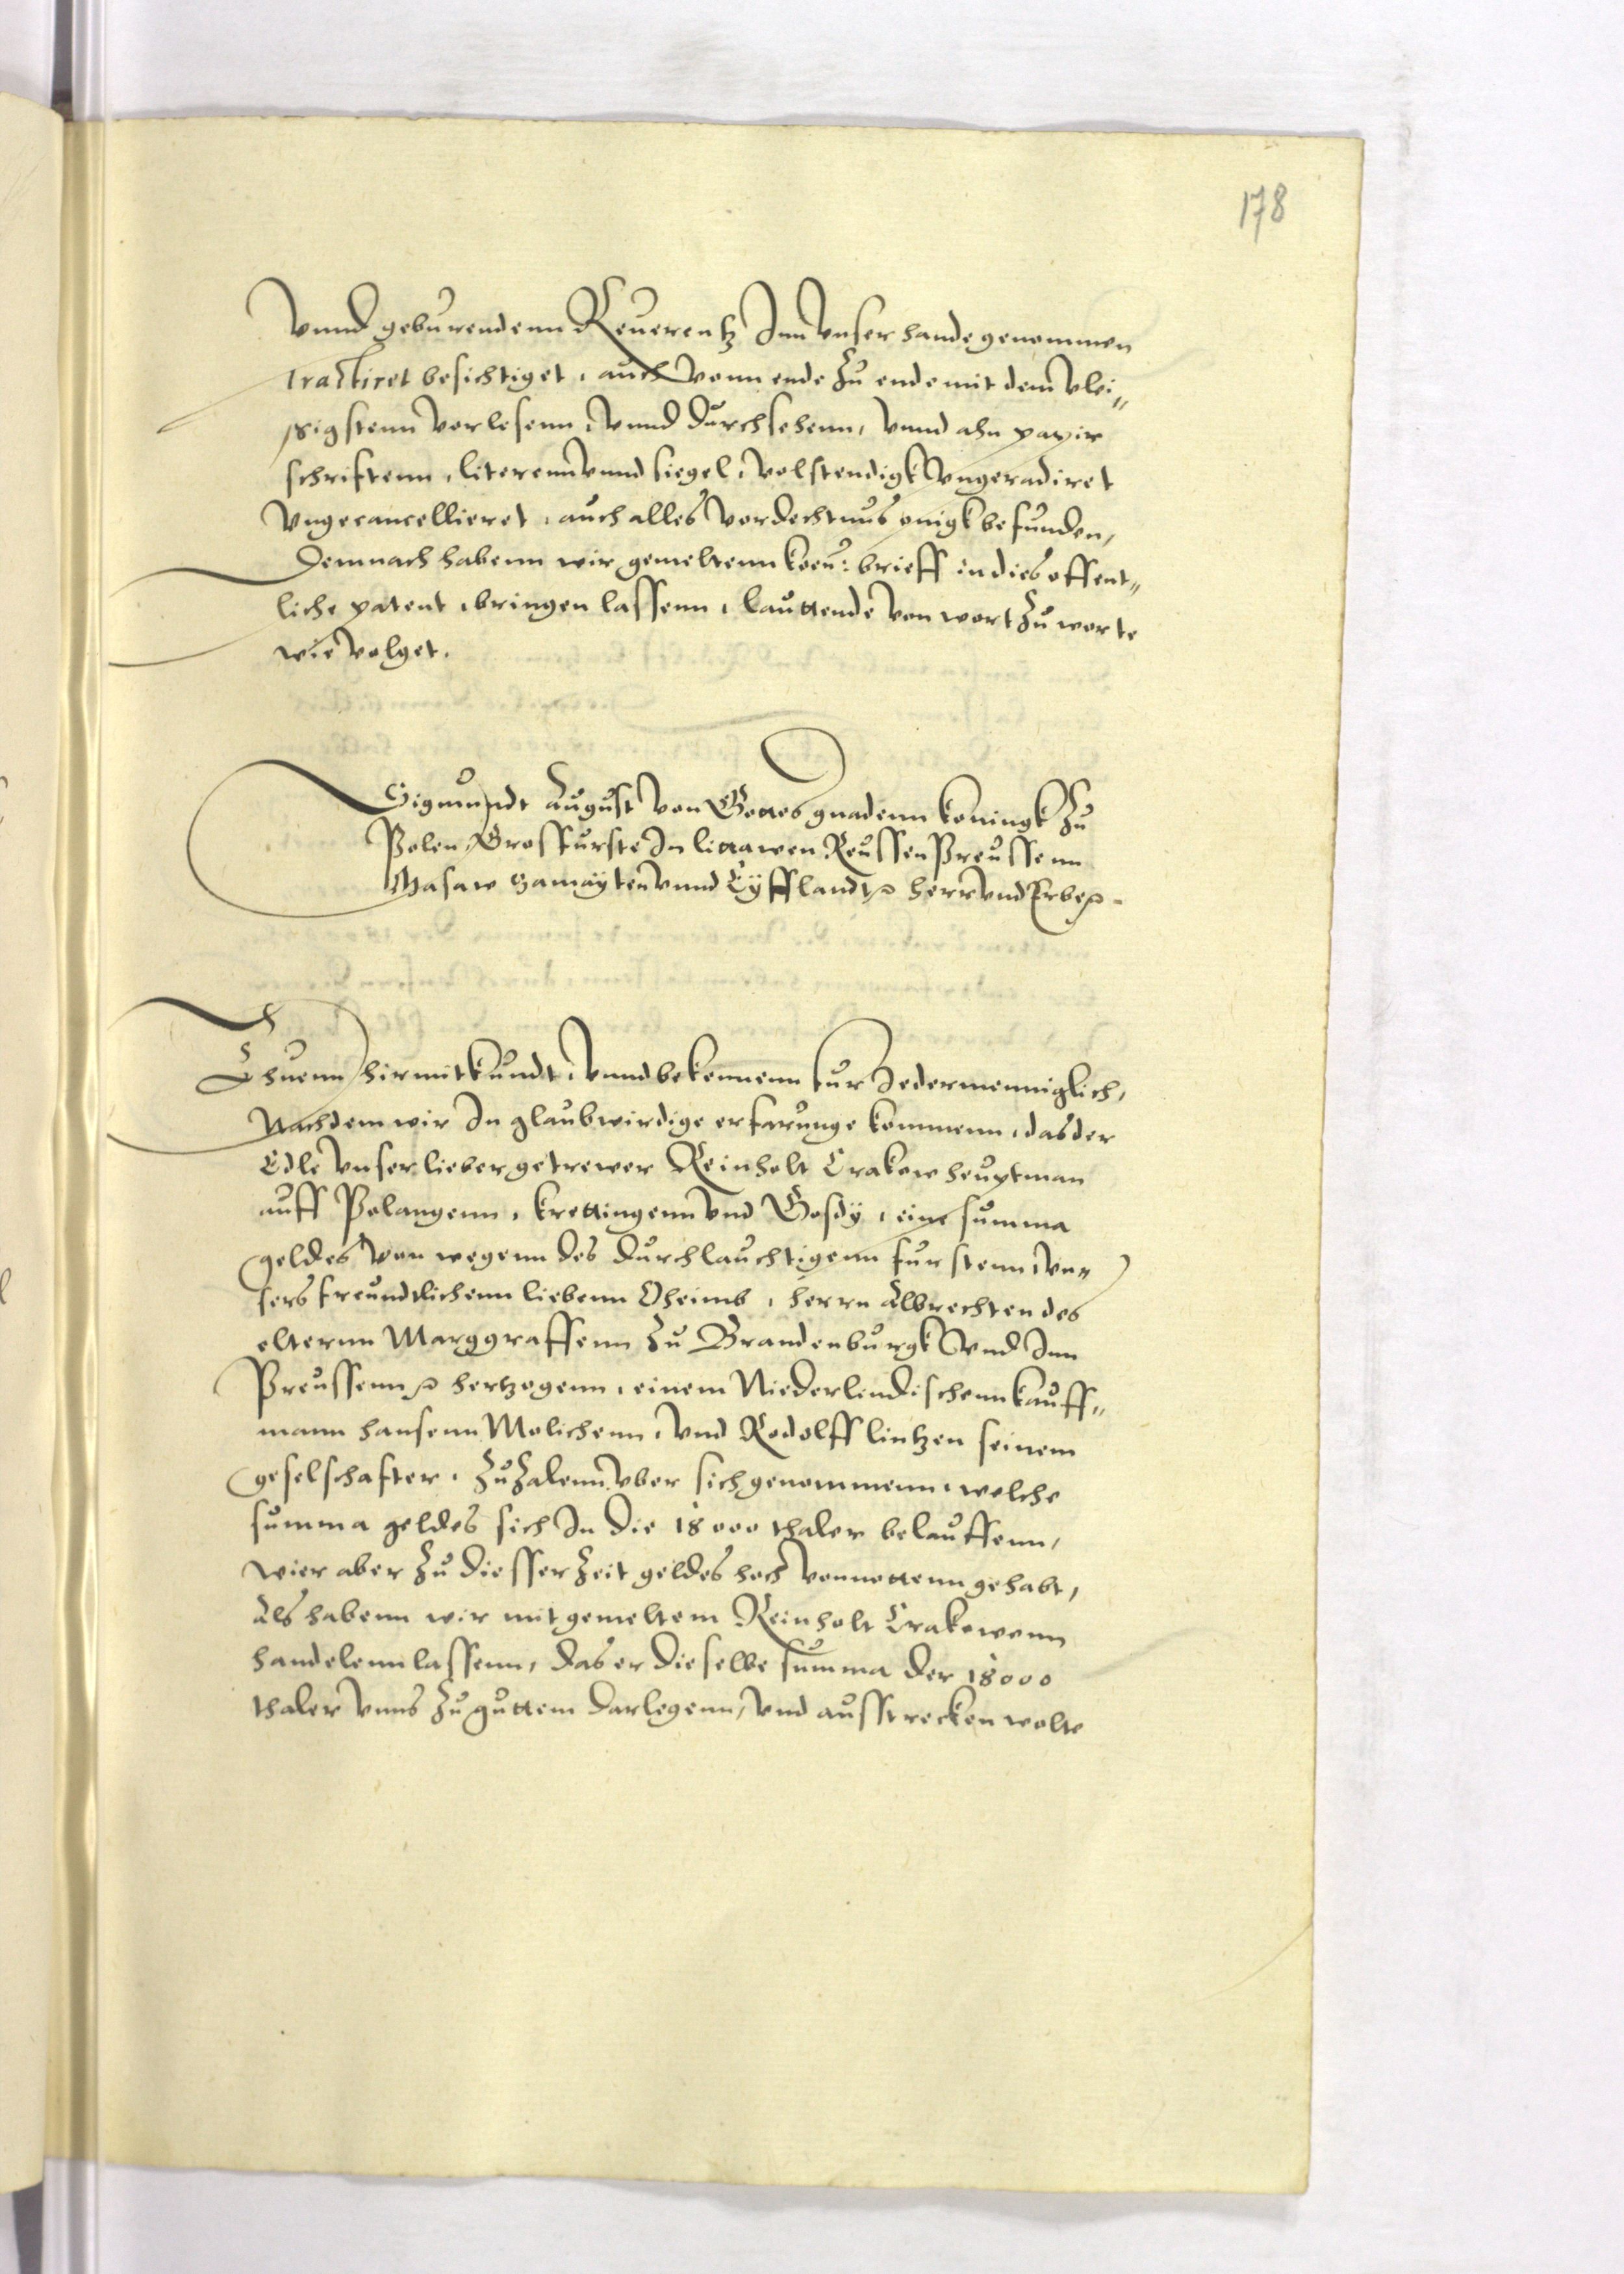 178
Vnnd geburendenn Reuerentz Inn vnser hande genommen
tractiret besichtiget, auch vonn ende zu ende mit dem vlei„
ssigstenn vorlesenn, vnnd durchsehenn, vnnd ahn papir
schrifftenn, literenn vnnd siegel, volstendigk vngeradiret
vngecancellieret, auch alles vordechtnus onigk befunden,
Demnach habenn wir gemeltenn koen: brieff in dies offent„
liche patent, bringen lassenn, lauttende von wort zu worte
wie volget.
Sigmundt August von Gottes gnadenn koningk zu
Polen, Grosfurste In littawen Reussen Preussenn
Masaw Samayten vnnd Lyfflandt herr vnd Erbe
Thuenn hirmit kundt, vnnd bekennenn fur Idermenniglich,
Nachdem wir In glaubwirdige erfarunge kommenn, das der
Edle vnser lieber getrewer Reinholt Crakow heuptman
auff Polangenn, krettingenn vnd Gosdÿ, eine summa
geldes von wegenn des durchlauchtigenn furstenn, vn„
sers freundtlichenn liebenn Oheimb, herrn Albrechten des
elternn Marggraffenn zu Brandenburgk vnd Inn
Preussenn hertzogenn, einem Niederlendischenn kauff„
mann hansenn Molichenn, vnd Rodolff lintzen seinem
geselschafter, zu zalenn vber sich genommenn, welche
summa geldes sich In die 18000 thaler belauffenn,
wier aber zu diesser zeit geldes hoch vonnottenn gehabt,
Als habenn wir mit gemeltem Reinholt Crakowenn
handelenn lassenn, das er dieselbe summa der 18000
thaler vnns zu guttem darlegenn, vnd ausstrecken wolte